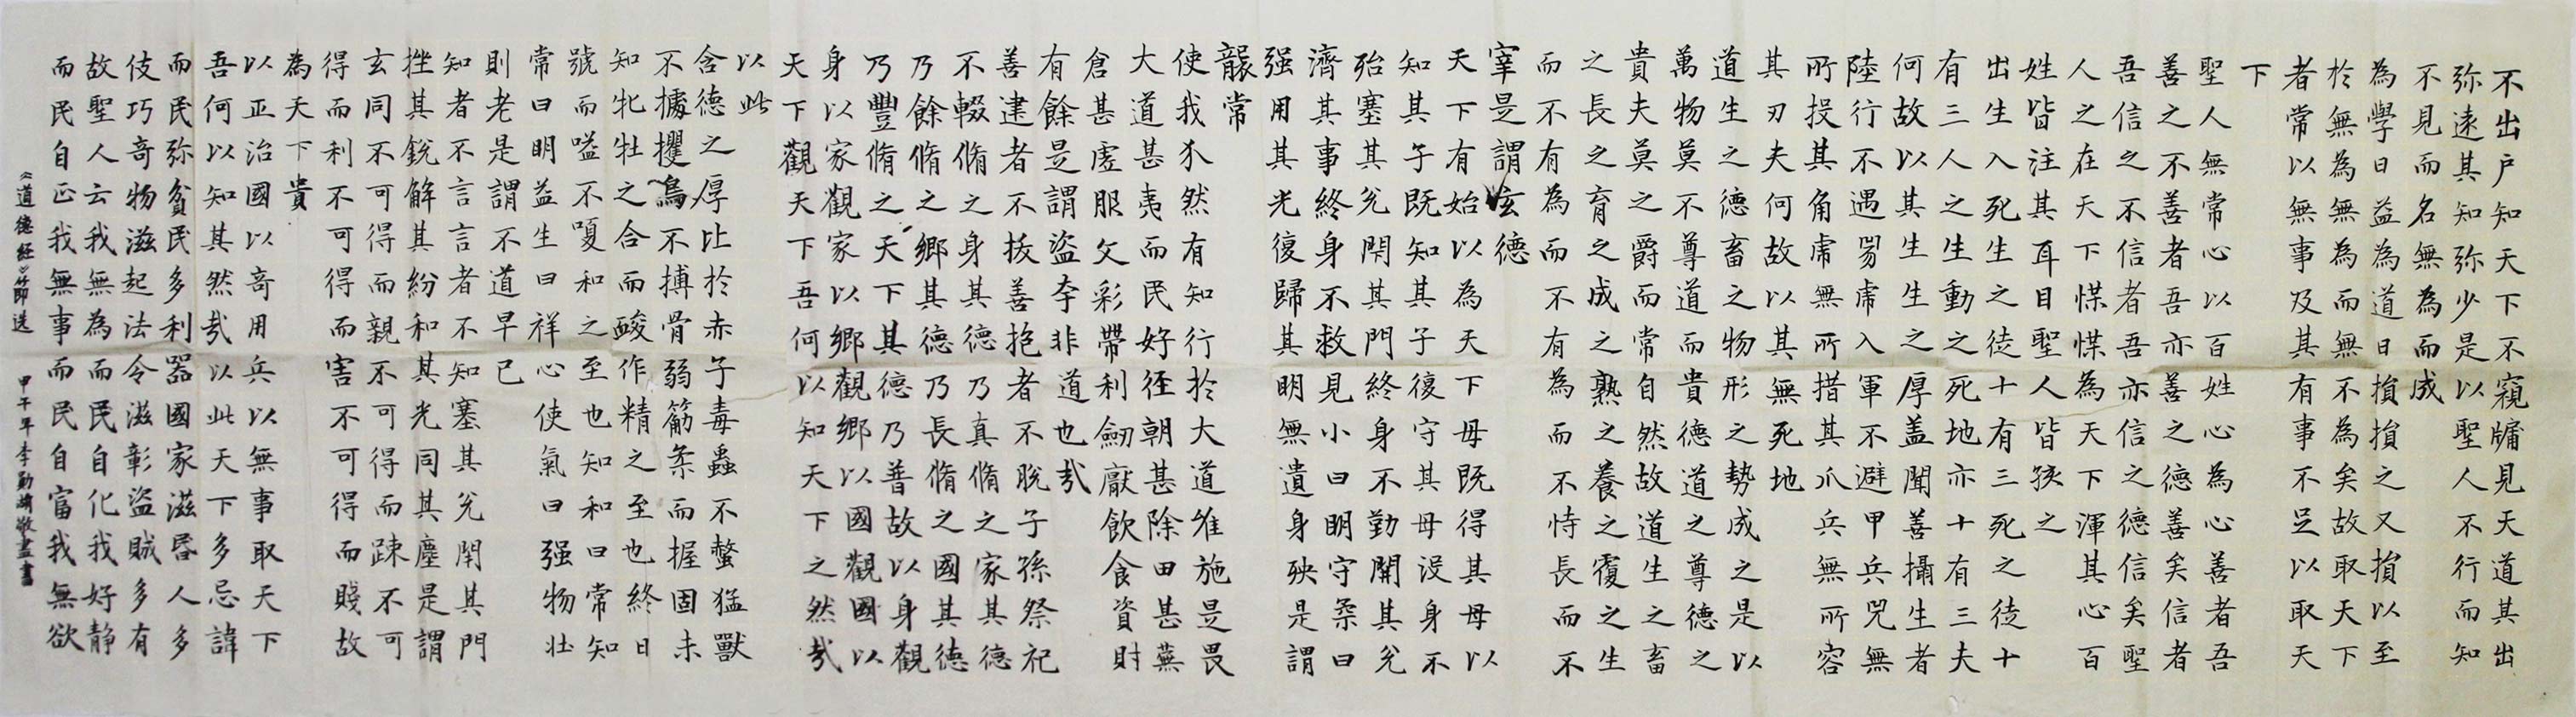 不出户知天下不窺牖見天道其出
弥遠其知弥少是以聖人不行而知
不見而名無為而成
為學日益為道日損損之又損以至
於無為無為而無不為矣故取天下
者常以無事及其有事不足以取天
下
聖人無常心以百姓心為心善者吾
善之不善者吾亦善之德善矣信者
吾信之不信者吾亦信之德信矣聖
人之在天下惵惵為天下渾其心百
姓皆注其耳目聖人皆孩之
出生入死生之徒十有三死之徒十
有三人之生動之死地亦十有三夫
何故以其生生之厚盖聞善攝生者
陸行不遇兕虎入軍不避甲兵兕無
所投其角虎無所措其爪兵無所容
其刃夫何故以其無死地
道生之德畜之物形之勢成之是以
萬物莫不尊道而貴德道之尊德之
貴夫莫之爵而常自然故道生之畜
之長之育之成之熟之養之覆之生
而不有為而不有為而不恃長而不
宰是謂玄德
天下有始以為天下母既得其母以
知其子既知其子復守其母没身不
殆塞其兑閇其門終身不勤開其兑
濟其事終身不救見小曰明守柔曰
强用其光復歸其明無遺身殃是謂
襲常
使我介然有知行於大道維施是畏
大道甚夷而民好徑朝甚除田甚蕪
倉甚虛服文彩帶利劒厭飲食資財
有餘是謂盗夸非道也哉
善建者不拔善抱者不脫子孫祭祀
不輟脩之身其德乃真脩之家其德
乃餘脩之鄉其德乃長脩之國其德
乃豐脩之天下其德乃普故以身觀
身以家觀家以鄉觀鄉以國觀國以
天下觀天下吾何以知天下之然哉
以此
含德之厚比於赤子毒蟲不螫猛獸
不據攫鳥不搏骨弱筋柔而握固未
知牝牡之合而䘒作精之至也終日
號而嗌不嗄和之至也知和曰常知
常曰明益生曰祥心使氣曰强物壯
則老是謂不道早已
知者不言言者不知塞其兑閇其門
挫其銳解其紛和其光同其塵是謂
玄同不可得而親不可得而踈不可
得而利不可得而害不可得而賤故
為天下貴
以正治國以奇用兵以無事取天下
吾何以知其然哉以此天下多忌諱
而民弥貧民多利器國家滋昬人多
伎巧奇物滋起法令滋彰盗賊多有
故聖人云我無為而民自化我好静
而民自正我無事而民自富我無欲
《道德經》節選 甲午年李勤敬畫書